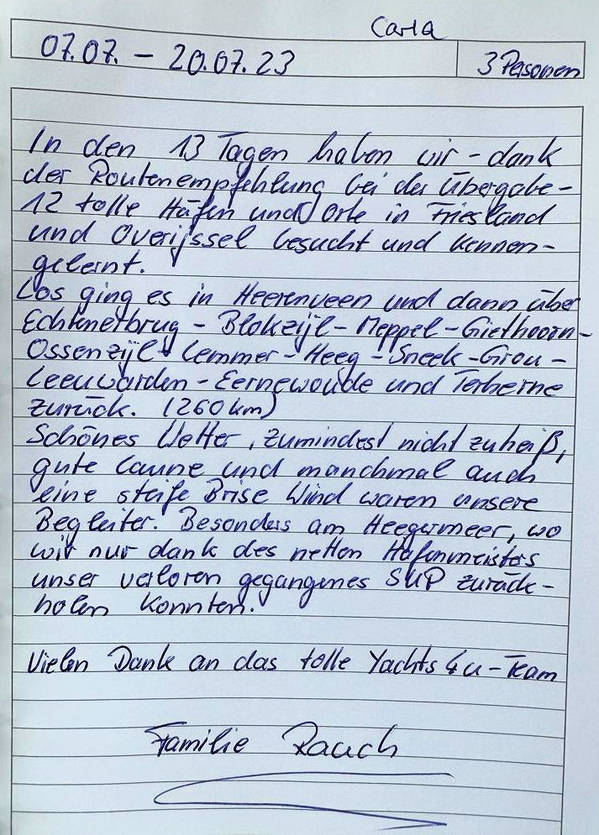 Carla
07.07. – 20.07.23
3 Personen
In den 13 Tagen haben wir – dank
der Routenempfehlung bei der Übergabe –
12 tolle Häfen und Orte in Friesland
und Overijssel besucht und kennen-
gelernt.
Los ging es in Heerenveen und dann über
Echtenerbrug – Blokzijl – Meppel – Giethoorn –
Ossenzijl – Lemmer – Heeg – Sneek – Grou –
Leeuwarden – Eernewoude und Terherne
zurück. (260 km)
Schönes Wetter, zumindest nicht zu heiß,
gute Laune und manchmal auch
eine steife Brise Wind waren unsere
Begleiter. Besonders am Heegermeer, wo
wir nur dank des netten Hafenmeisters
unser verloren gegangenes SUP zurück-
holen konnten.
Vielen Dank an das tolle Yachts 4u – Team
Familie Rauch